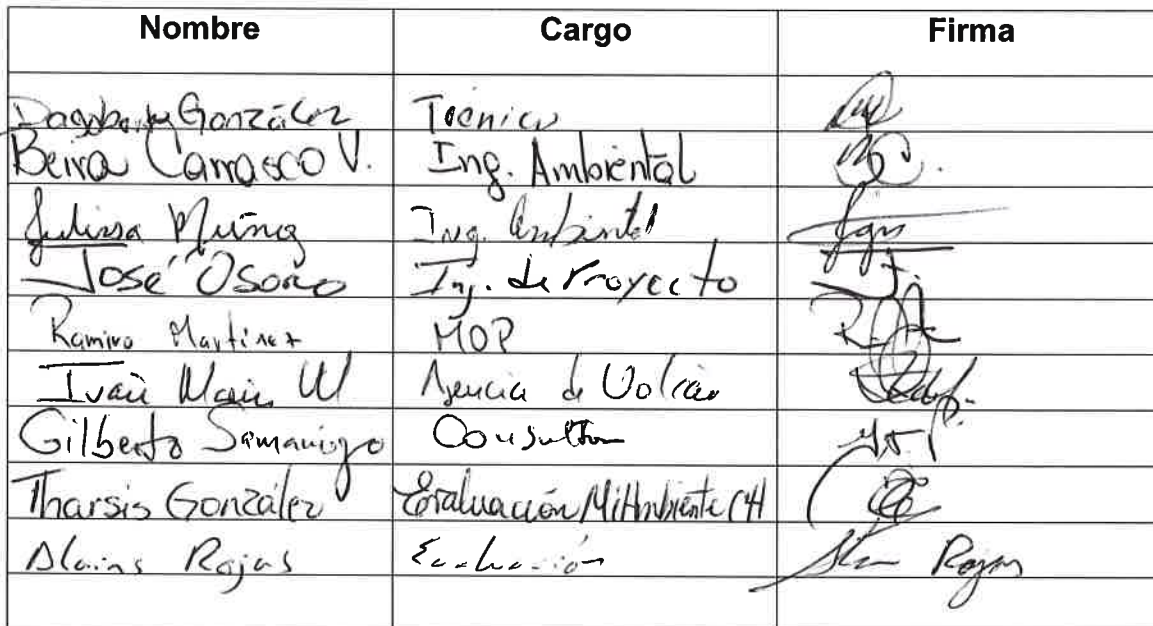 Nombre Cargo Firma
González Técnico
Beira Carrasco V. Ing. Ambiental
Julissa Muñoz Ing. Ambiental
José Osorio Ing. de Proyecto
Ramiro Martínez MOP
Iván W Agencia de
Gilberto Samaniego Consultor
Tharsis González Evaluación MiAmbiente CH
Rojas Evaluación Rojas